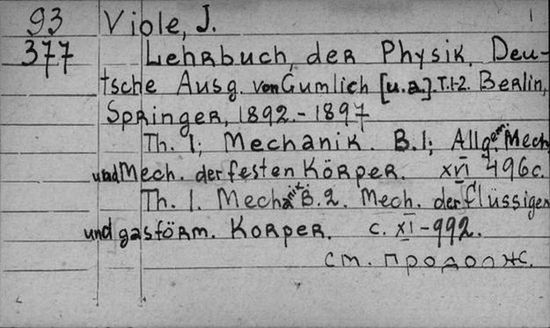 93 Viole, J. 1
377 Lehrbuch der Physik. Deu-
tsche Ausg. von Gumlich [u.a.] T.1-2. Berlin,
Springer, 1892.-1897
Th. 1; Mechanik. B.1; Allgem. Mech
und Mech. der festen Körper. XVI 496c.
Th. 1. Mechanik B.2. Mech. der flüssigen
und gasförm. Korper. c. XI-992.
см. продолж.